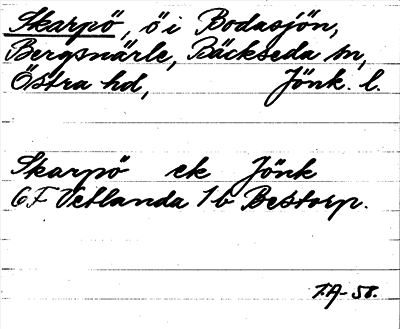 Skarpö, ö i Bodasjön,
Bergsnärle, Bäckseda sn,
Östra hd, Jönk. l.
Skarpö ek Jönk
6F Vetlanda 1b Bestorp.
T.A-58.